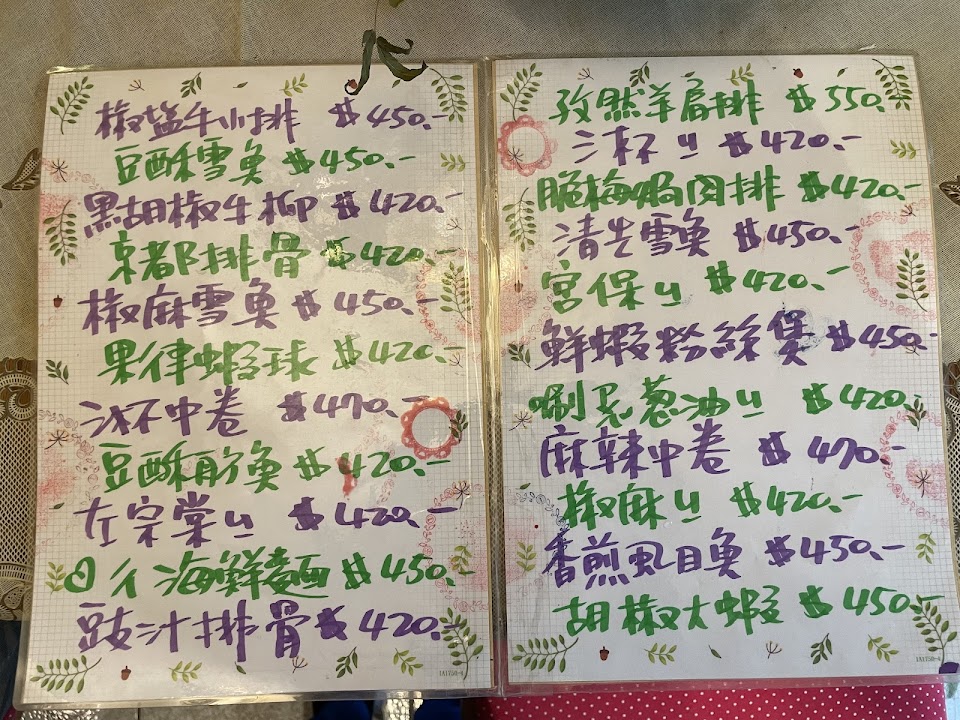 椒塩牛小排 $450.-
豆酥雪魚 $450.-
黑胡椒牛柳 $420.-
京都排骨 $420.-
椒麻雪魚 $450.-
果律蝦球 $420.-
三杯中卷 $470.-
豆酥魚 $420.-
左宗棠ㄐㄐ $420.-
日式海鮮麵 $450.-
豉汁排骨 $420.-
1A1750-8
孜然羊肩排 $550.-
三杯ㄐㄐ $420.-
脆梅焗肉排 $420.-
清蒸雪魚 $450.-
宮保ㄐㄐ $420.-
鮮蝦粉絲煲 $450.-
涮嘴葱油ㄐㄐ $420.-
麻辣中卷 $470.-
椒麻ㄐㄐ $420.-
香煎虱目魚 $450.-
胡椒大蝦 $450.-
1A1750-8